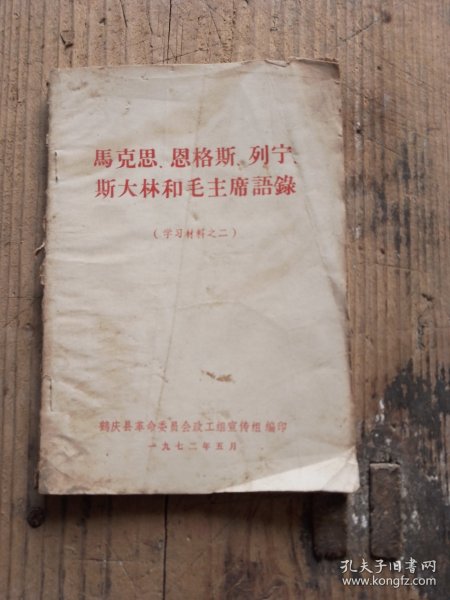 馬克思、恩格斯、列宁、
斯大林和毛主席語錄
（学习材料之二）
鹤庆县革命委员会政工组宣传组 编印
一九七二年五月
孔夫子旧书网
www.kongfz.com